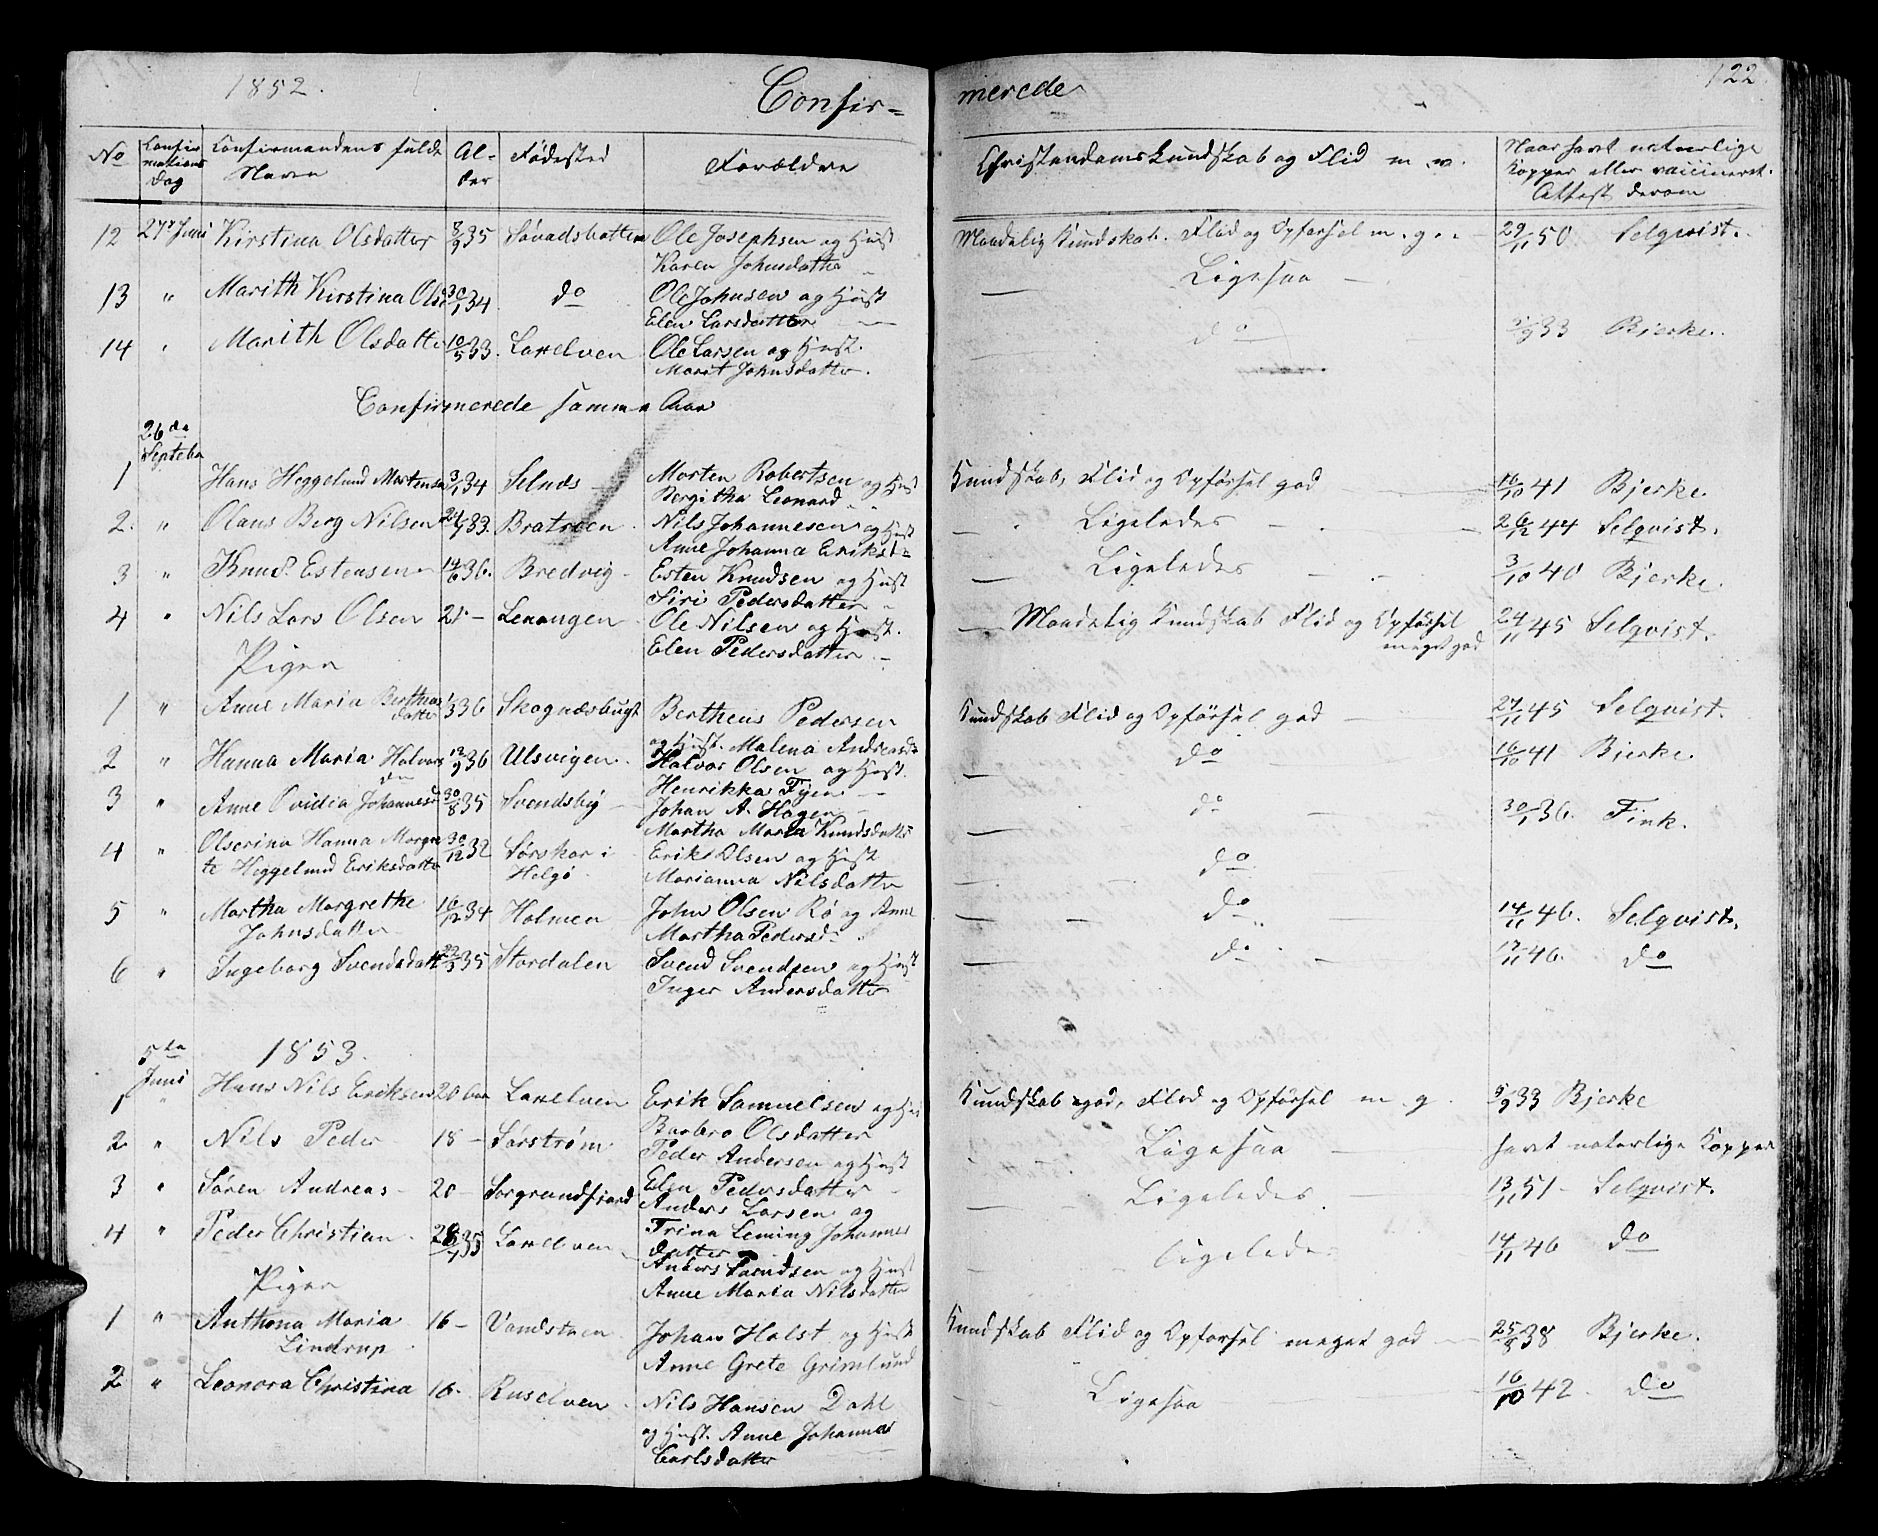 1852. Confir= merede 122
No Confir mations Dag Confirmandens fulde Navn Al- der Fødested Forældre Christendomskundskab og Flid m. v. Naar havt naturlige Kopper eller vaccineret. Attest derom
12 27de Juni Kirstina Olsdatter 8/9 35 Ole Josephsen og Hust Maadelig Kundskab. Flid og Opførsel m. g. 29/11 50 Selqvist.
Karen Johnsdatter
13 " Marith Kirstina Olsd 30/1 34 do Ole Johnsen og Hust Ligesaa
Elen Larsdatter
14 " Marith Olsdatter 10/5 33. Laxelven Ole Larsen og Hust. do 33 Bjerke.
Marit Johnsdatter.
Confirmerede samme Aar
26de Septebr
1 Hans Heggelund Mortensen 3/1 34 Selnæs Morten Robertsen og Hust Kundskab, Flid og Opførsel god 16/10 41 Bjerke.
Bergitha Leonard
2. " Olaus Berg Nilsen 33. Bratreen Nils Johannesen og Hust Ligeledes 26/12 44 Selqvist.
Anne Johanna Eriksd
3 " Knud Estensen 14/6 36. Bredvig Esten Knudsen og Hust Ligeledes 3/10 40 Bjerke.
Siri Pedersdatter
4 " Nils Lars Olsen 21 - Lenangen Ole Nilsen og Hust. Maadelig Kundskab Flid og Opførsel meget god 24/11 45 Selqvist.
Elen Pedersdatter
Piger
1 " Anne Maria Bertheus datter 1/3 36 Skognæsbugt Bertheus Pedersen Kundskab Flid og Opførsel god 27/11 45 Selqvist.
og Hust. Malena Andreasd
2 " Hanna Maria Halvors da 12/9 36 Ulsvigen Halvor Olsen og Hust do 16/10 41 Bjerke.
Henrikka Fyen
3 " Anne Ovidia Johannesd 30/8 35 Svendsby Johan A. Hagen do 30/1 36. Fink.
Martha Maria Knudsdatter
4 " Olserina Hanna Margre 30/12 32 Sørskar i Erik Olsen og Hust do
te Heggelund Eriksdatter Helgø Marianna Nilsdatter
5 " Martha Margrethe 16/12 34 Holmen John Olsen Rø og Anne do 14/11 46. Selqvist.
Johnsdatter Martha Pedersd
6 " Ingeborg Svendsdatt 22/3 35 Stordalen Svend Svendsen og Hust do 17/11 46. do
Inger Andersdatter
5te Juni 1853.
1 " Hans Nils Eriksen 20 Aar Laxelven Erik Samuelsen og Hus Kundskab god, Flid og Opførsel m. g. 5/9 33 Bjerke
Barbro Olsdatter
2 " Nils Peder 18 - Sørstrøm Peder Andersen og Hust Ligesaa havt naturlige Kopper
Elen Pedersdatter
3 " Søren Andreas 20 - Sørgrundfjord Anders Larsen og Ligeledes 13/11 51 - Selqvist.
Trina Leming Johannes datter
4 " Peder Christian 35 Laxelven Anders Parndsen og Hust ligeledes 14/11 46 do
Anne Maria Nilsdatter
Piger
1 " Anthona Maria 16 - Vandstuen Johan Holst og Hust Kundskab Flid og Opførsel meget god 25/8 38 Bjerke.
Lindrup Anne Grete Grimlund
2 " Leonora Christina 16 - Ruselven Nils Hansen Dahl Ligesaa 16/10 42 do
og Hust. Anne Johanna
Carlsdatter